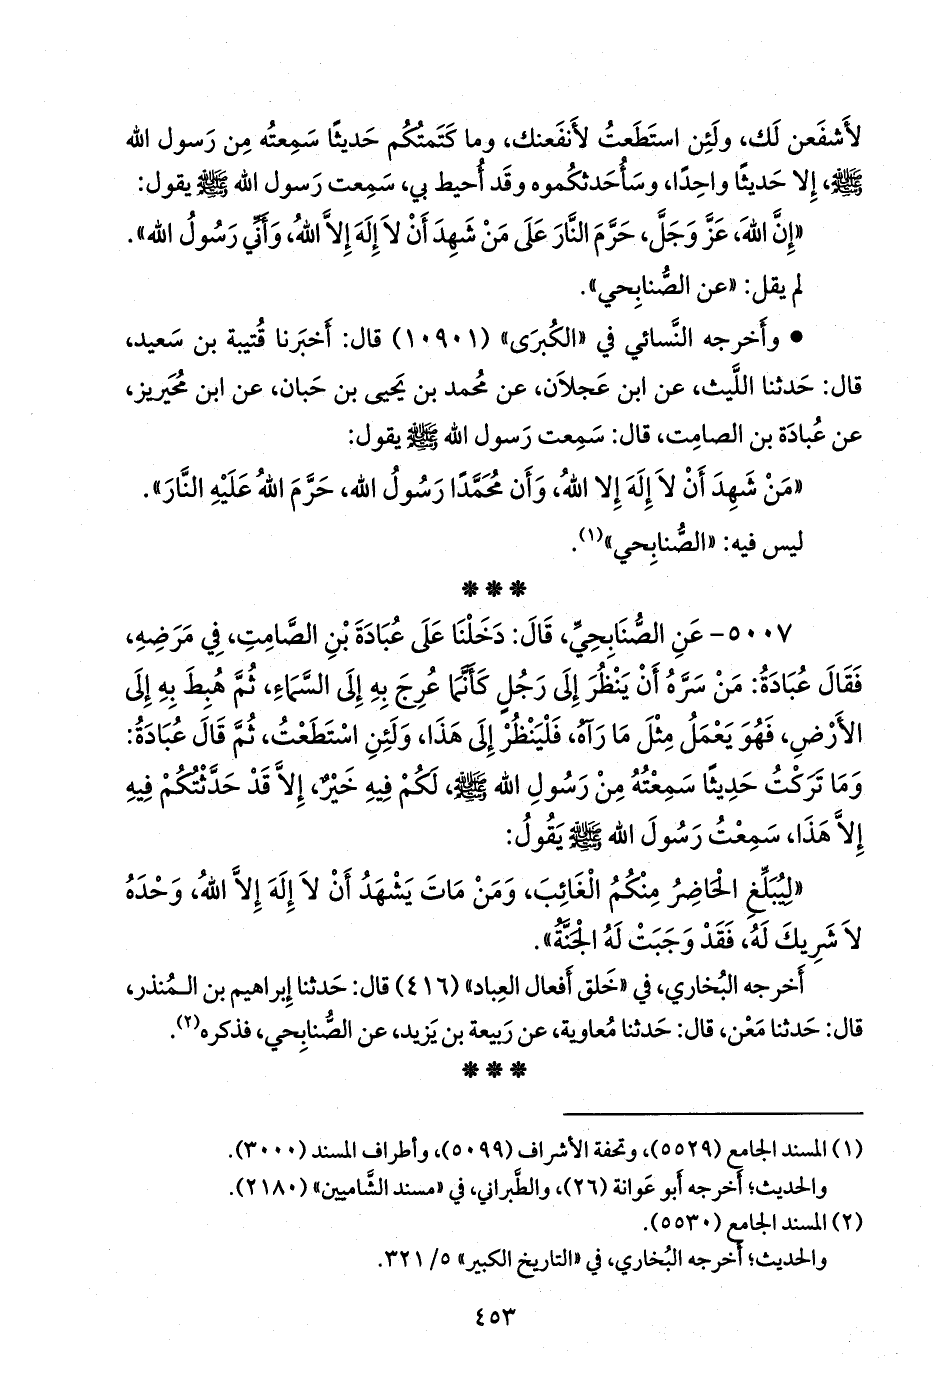 لأَشفَعن لَك، ولَئِن استَطَعتُ لأَنفَعنك، وما كَتَمتُكُم حَديثًا سَمِعتُه مِن رَسول الله
ﷺ، إِلا حَديثًا واحِدًا، وسَأُحَدثكُموه وقَد أُحيط بي، سَمِعت رَسول الله ﷺ يقول:
«إِنَّ اللهَ، عَزَّ وَجَلَّ، حَرَّمَ النَّارَ عَلَى مَنْ شَهِدَ أَنْ لاَ إِلَهَ إِلاَّ اللهُ، وَأَنِّي رَسُولُ الله».
لم يقل: «عن الصُّنابِحي».
• وأَخرجه النَّسائي في «الكُبرَى» (١٠٩٠١) قال: أَخبَرنا قُتيبة بن سَعيد،
قال: حَدثنا اللَّيث، عن ابن عَجلاَن، عن مُحمد بن يَحيى بن حَبان، عن ابن مُحَيريز،
عن عُبادَة بن الصامِت، قال: سَمِعت رَسول الله ﷺ يقول:
«مَنْ شَهِدَ أَنْ لاَ إِلَهَ إِلا اللهُ، وَأَن مُحَمَّدًا رَسُولُ الله، حَرَّمَ اللهُ عَلَيْهِ النَّارَ».
ليس فيه: «الصُّنابِحي»(١).
* * *
٥٠٠٧- عَنِ الصُّنَابِحِيِّ، قَالَ: دَخَلْنَا عَلَى عُبَادَةَ بْنِ الصَّامِتِ، فِي مَرَضِهِ،
فَقَالَ عُبَادَةُ: مَنْ سَرَّهُ أَنْ يَنْظُرَ إِلَى رَجُلٍ كَأَنَّمَا عُرِجَ بِهِ إِلَى السَّمَاءِ، ثُمَّ هُبِطَ بِهِ إِلَى
الأَرْضِ، فَهُوَ يَعْمَلُ مِثْلَ مَا رَآهُ، فَلْيَنْظُرْ إِلَى هَذَا، وَلَئِنِ اسْتَطَعْتُ، ثُمَّ قَالَ عُبَادَةُ:
وَمَا تَرَكْتُ حَدِيثًا سَمِعْتُهُ مِنْ رَسُولِ الله ﷺ، لَكُمْ فِيهِ خَيْرٌ، إِلاَّ قَدْ حَدَّثْتُكُمْ فِيهِ
إِلاَّ هَذَا، سَمِعْتُ رَسُولَ الله ﷺ يَقُولُ:
«لِيُبَلِّغِ الْحَاضِرُ مِنْكُمُ الْغَائِبَ، وَمَنْ مَاتَ يَشْهَدُ أَنْ لاَ إِلَهَ إِلاَّ اللهُ، وَحْدَهُ
لاَ شَرِيكَ لَهُ، فَقَدْ وَجَبَتْ لَهُ الْجَنَّةُ».
أَخرجه البُخاري، في «خَلق أَفعال العِباد» (٤١٦) قال: حَدثنا إِبراهيم بن الـمُنذر،
قال: حَدثنا مَعْن، قال: حَدثنا مُعاوية، عن رَبيعة بن يَزيد، عن الصُّنابِحي، فذكره(٢).
* * *
(١) المسند الجامع (٥٥٢٩)، وتحفة الأشراف (٥٠٩٩)، وأطراف المسند (٣٠٠٠).
والحديث؛ أَخرجه أبو عَوانة (٢٦)، والطَّبراني، في «مسند الشَّاميين» (٢١٨٠).
(٢) المسند الجامع (٥٥٣٠).
والحديث؛ أَخرجه البُخاري، في «التاريخ الكبير» ٥/ ٣٢١.
٤٥٣